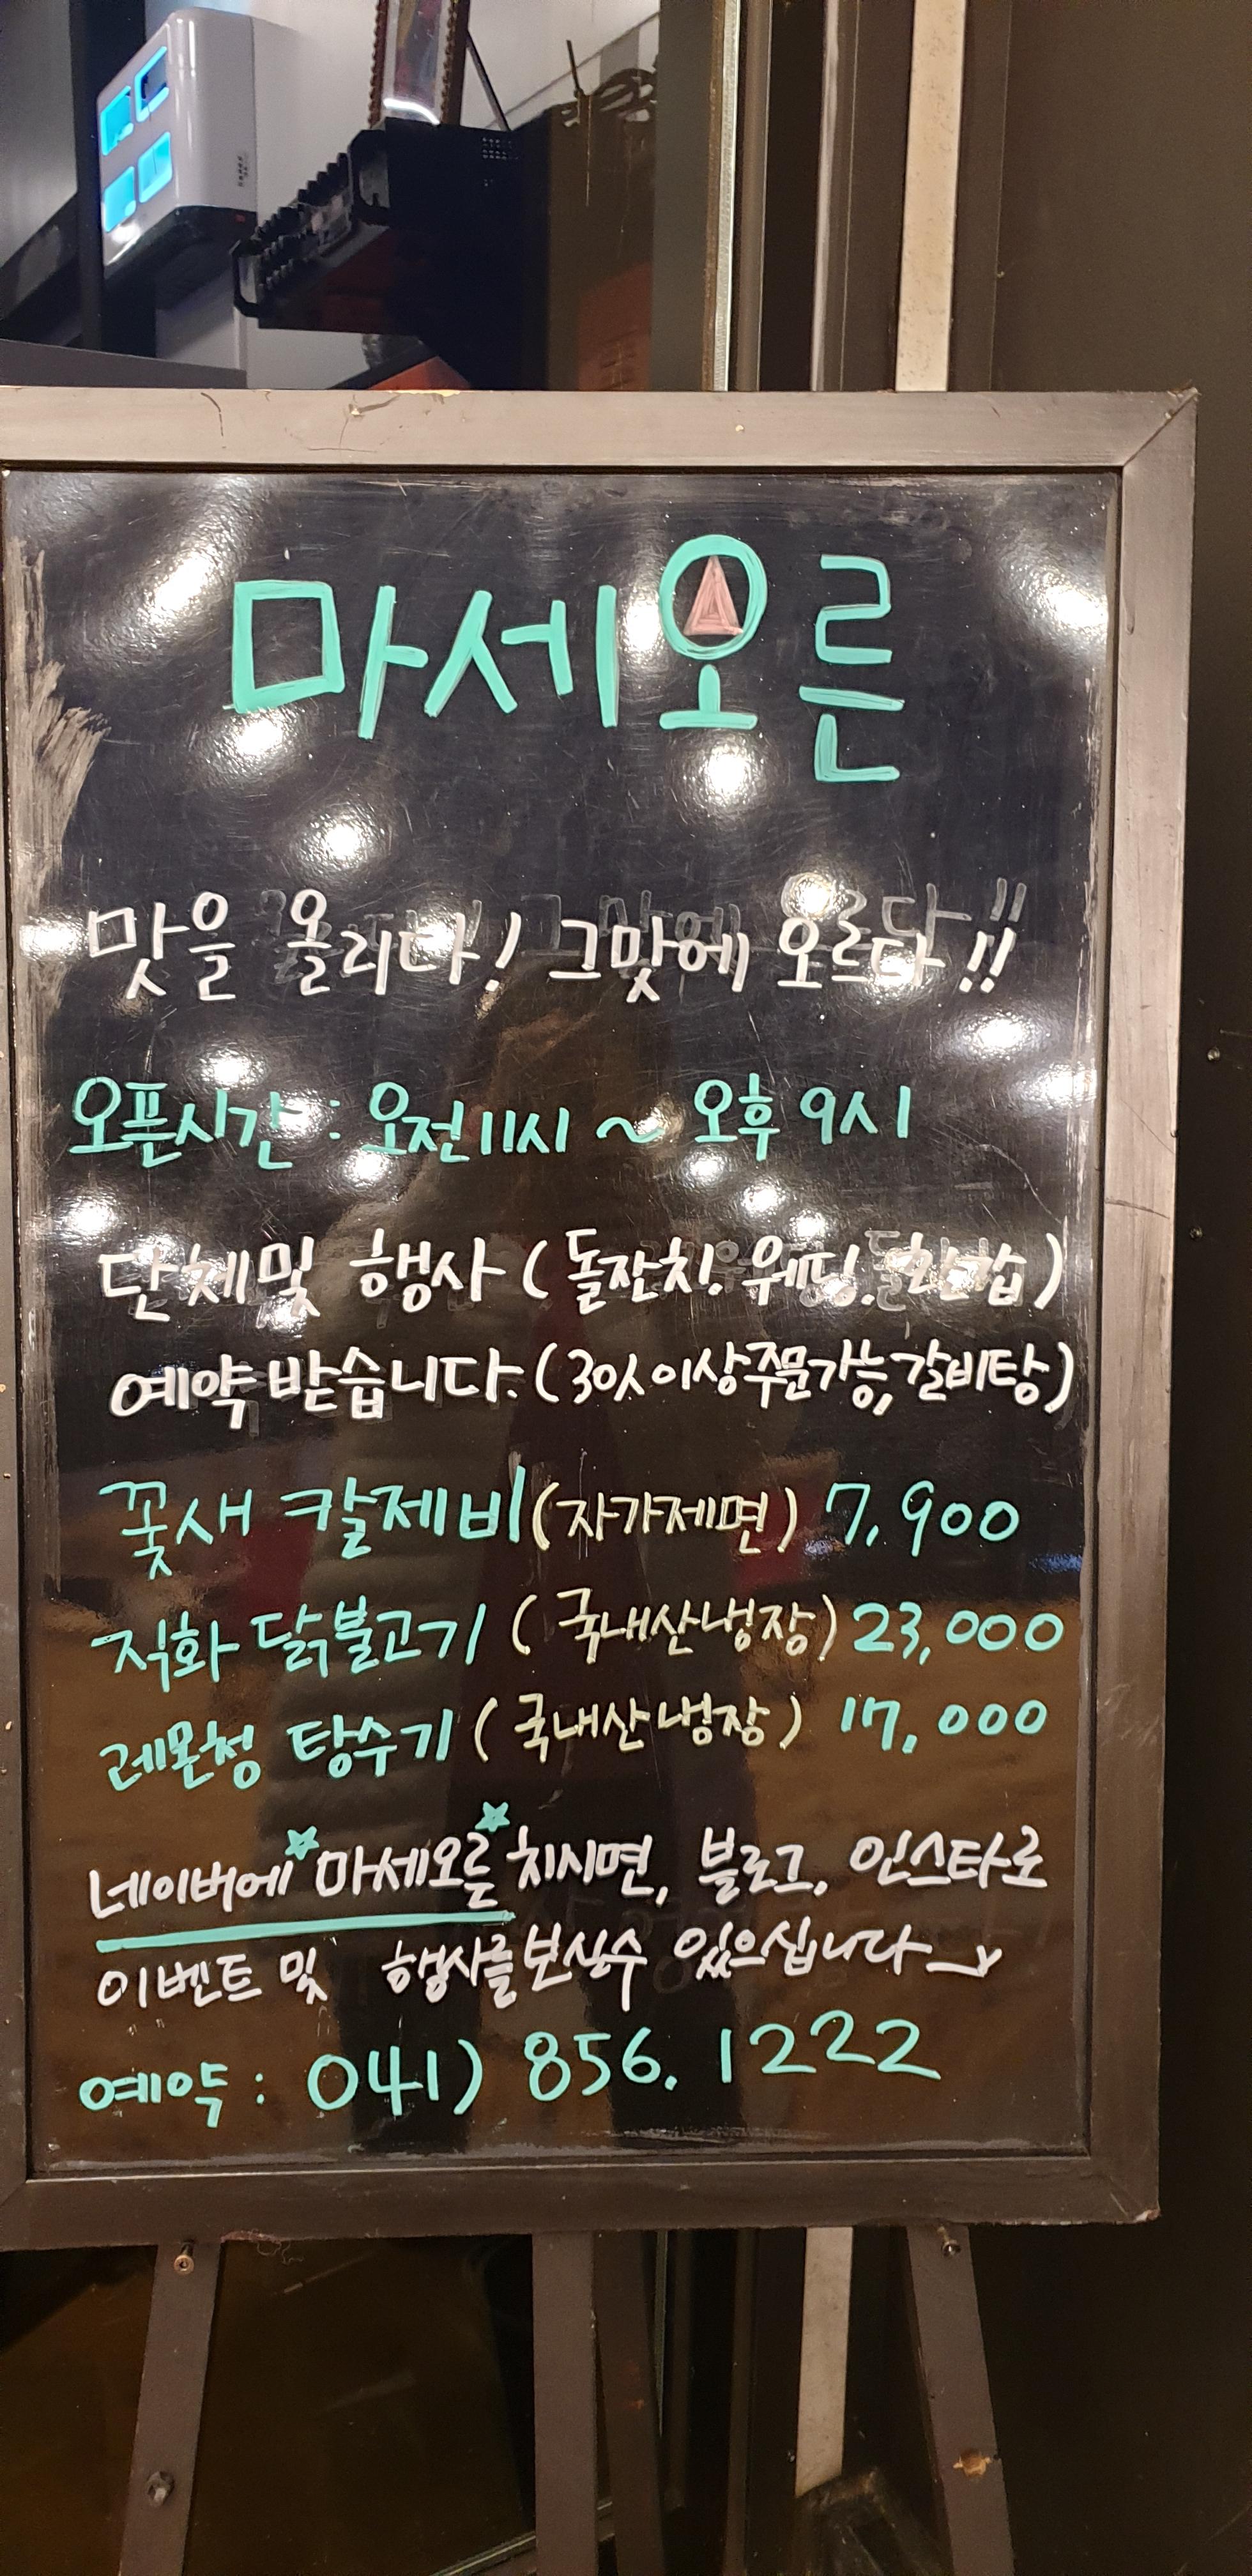 마세오른
맛을 올리다! 그맛에 오르다!!
오픈시간: 오전11시 ~ 오후 9시
단체및 행사 (돌잔치. 웨딩. 환갑)
예약받습니다. (30人이상주문가능, 갈비탕)
꽃새 칼제비(자가제면) 7,900
직화 닭불고기 (국내산냉장) 23,000
레몬청 탕수기 (국내산냉장) 17,000
네이버에 "마세오른" 치시면, 블로그, 인스타로
이벤트 및 행사를보실수 있으십니다
예약: 041) 856. 1222